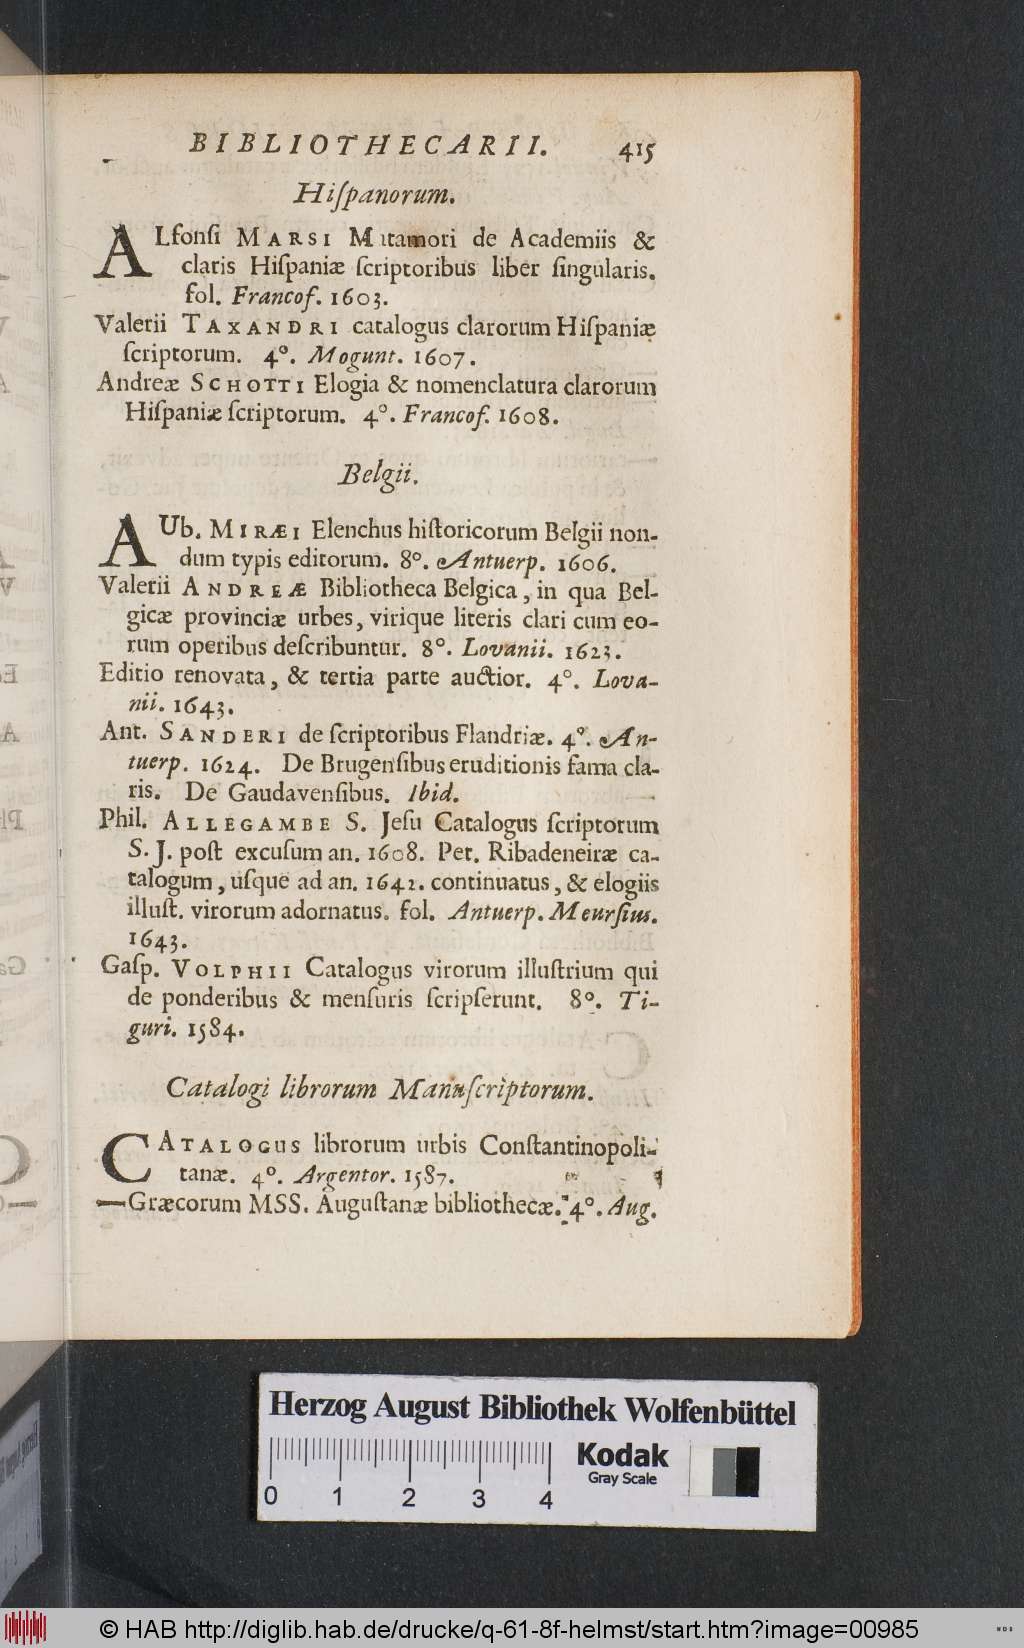 BIBLIOTHECARII. 415
Hiſpanorum.
ALfonſi MARSI Matamori de Academiis &
claris Hiſpaniæ ſcriptoribus liber ſingularis.
fol. Francof. 1603.
Valerii TAXANDRI catalogus clarorum Hiſpaniæ
ſcriptorum. 4°. Mogunt. 1607.
Andreæ SCHOTTI Elogia & nomenclatura clarorum
Hiſpaniæ ſcriptorum. 4°. Francof. 1608.
Belgii.
AUb. MIRÆI Elenchus hiſtoricorum Belgii non-
dum typis editorum. 8°. Antuerp. 1606.
Valerii ANDREÆ Bibliotheca Belgica, in qua Bel-
gicæ provinciæ urbes, virique literis clari cum eo-
rum operibus deſcribuntur. 8°. Lovanii. 1623.
Editio renovata, & tertia parte auctior. 4°. Lova-
nii. 1643.
Ant. SANDERI de ſcriptoribus Flandriæ. 4°. An-
tuerp. 1624. De Brugenſibus eruditionis fama cla-
ris. De Gaudavenſibus. Ibid.
Phil. ALLEGAMBE S. Jeſu Catalogus ſcriptorum
S. J. poſt excuſum an. 1608. Pet. Ribadeneiræ ca-
talogum, uſque ad an. 1642. continuatus, & elogiis
illuſt. virorum adornatus. fol. Antuerp. Meurſius.
1643.
Gaſp. VOLPHII Catalogus virorum illuſtrium qui
de ponderibus & menſuris ſcripſerunt. 8°. Ti-
guri. 1584.
Catalogi librorum Manuſcriptorum.
CATALOGUS librorum urbis Conſtantinopoli-
tanæ. 4°. Argentor. 1587.
—Græcorum MSS. Auguſtanæ bibliothecæ. 4°. Aug.
Herzog August Bibliothek Wolfenbüttel
Kodak
Gray Scale
0 1 2 3 4
© HAB http://diglib.hab.de/drucke/q-61-8f-helmst/start.htm?image=00985